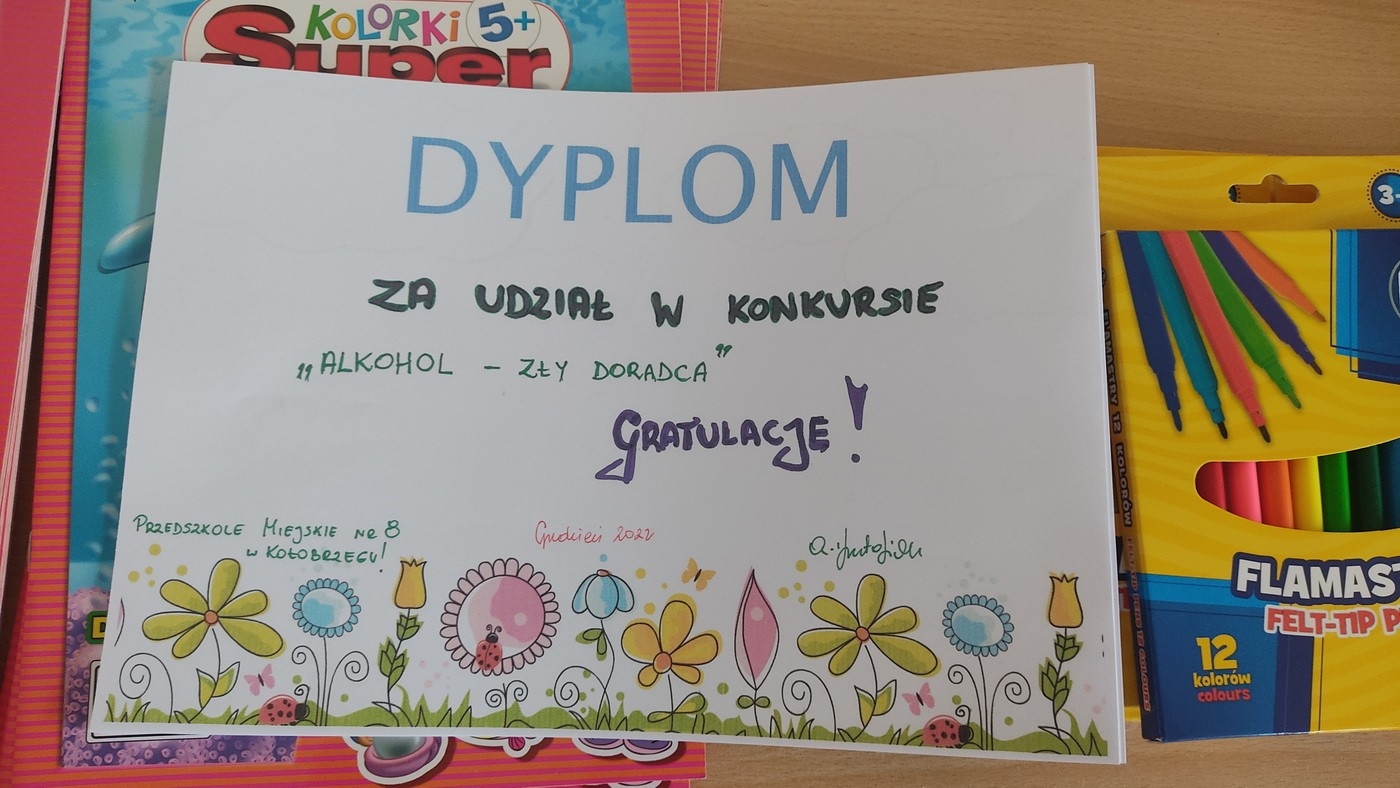 KOLORKI 5+
Super
DYPLOM
ZA UDZIAŁ W KONKURSIE
„ALKOHOL – ZŁY DORADCA”
GRATULACJE!
PRZEDSZKOLE MIEJSKIE NR 8
W KOŁOBRZEGU!
Grudzień 2022
FLAMASTRY 12 KOLORÓW
FLAMAST
FELT-TIP P
12
kolorów
colours